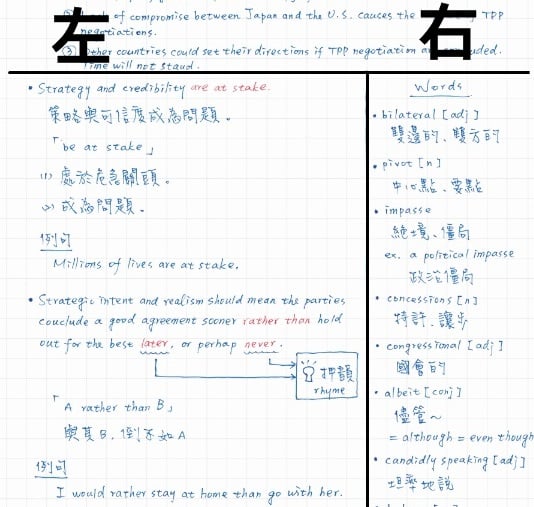 左
右
of compromise between Japan and the U.S. cauces the TPP
negotiations.
③ Other countries could set their directions if TPP negotiation
Time will not staud.
• Strategy and credibility are at stake.
策略與可信度成為問題。
「be at stake」
(1) 處於危急關頭。
(2) 成為問題。
例句
Millions of lives are at stake.
• Strategic intent and realism should mean the parties
couclude a good agreement sooner rather than hold
out for the best later, or perhap never.
押韻
rhyme
「A rather than B」
與其B, 倒不如A
例句
I would rather stay at home than go with her.
Words
• bilateral [adj]
雙邊的、雙方的
• pivot [n]
中心點、要點
• impasse
絕境、僵局
ex. a political impasse
政治僵局
• concessions [n]
特許、讓步
• congressional [adj]
國會的
• albeit [conj]
儘管~
= although = even though
• candidly speaking [adj]
坦率地說